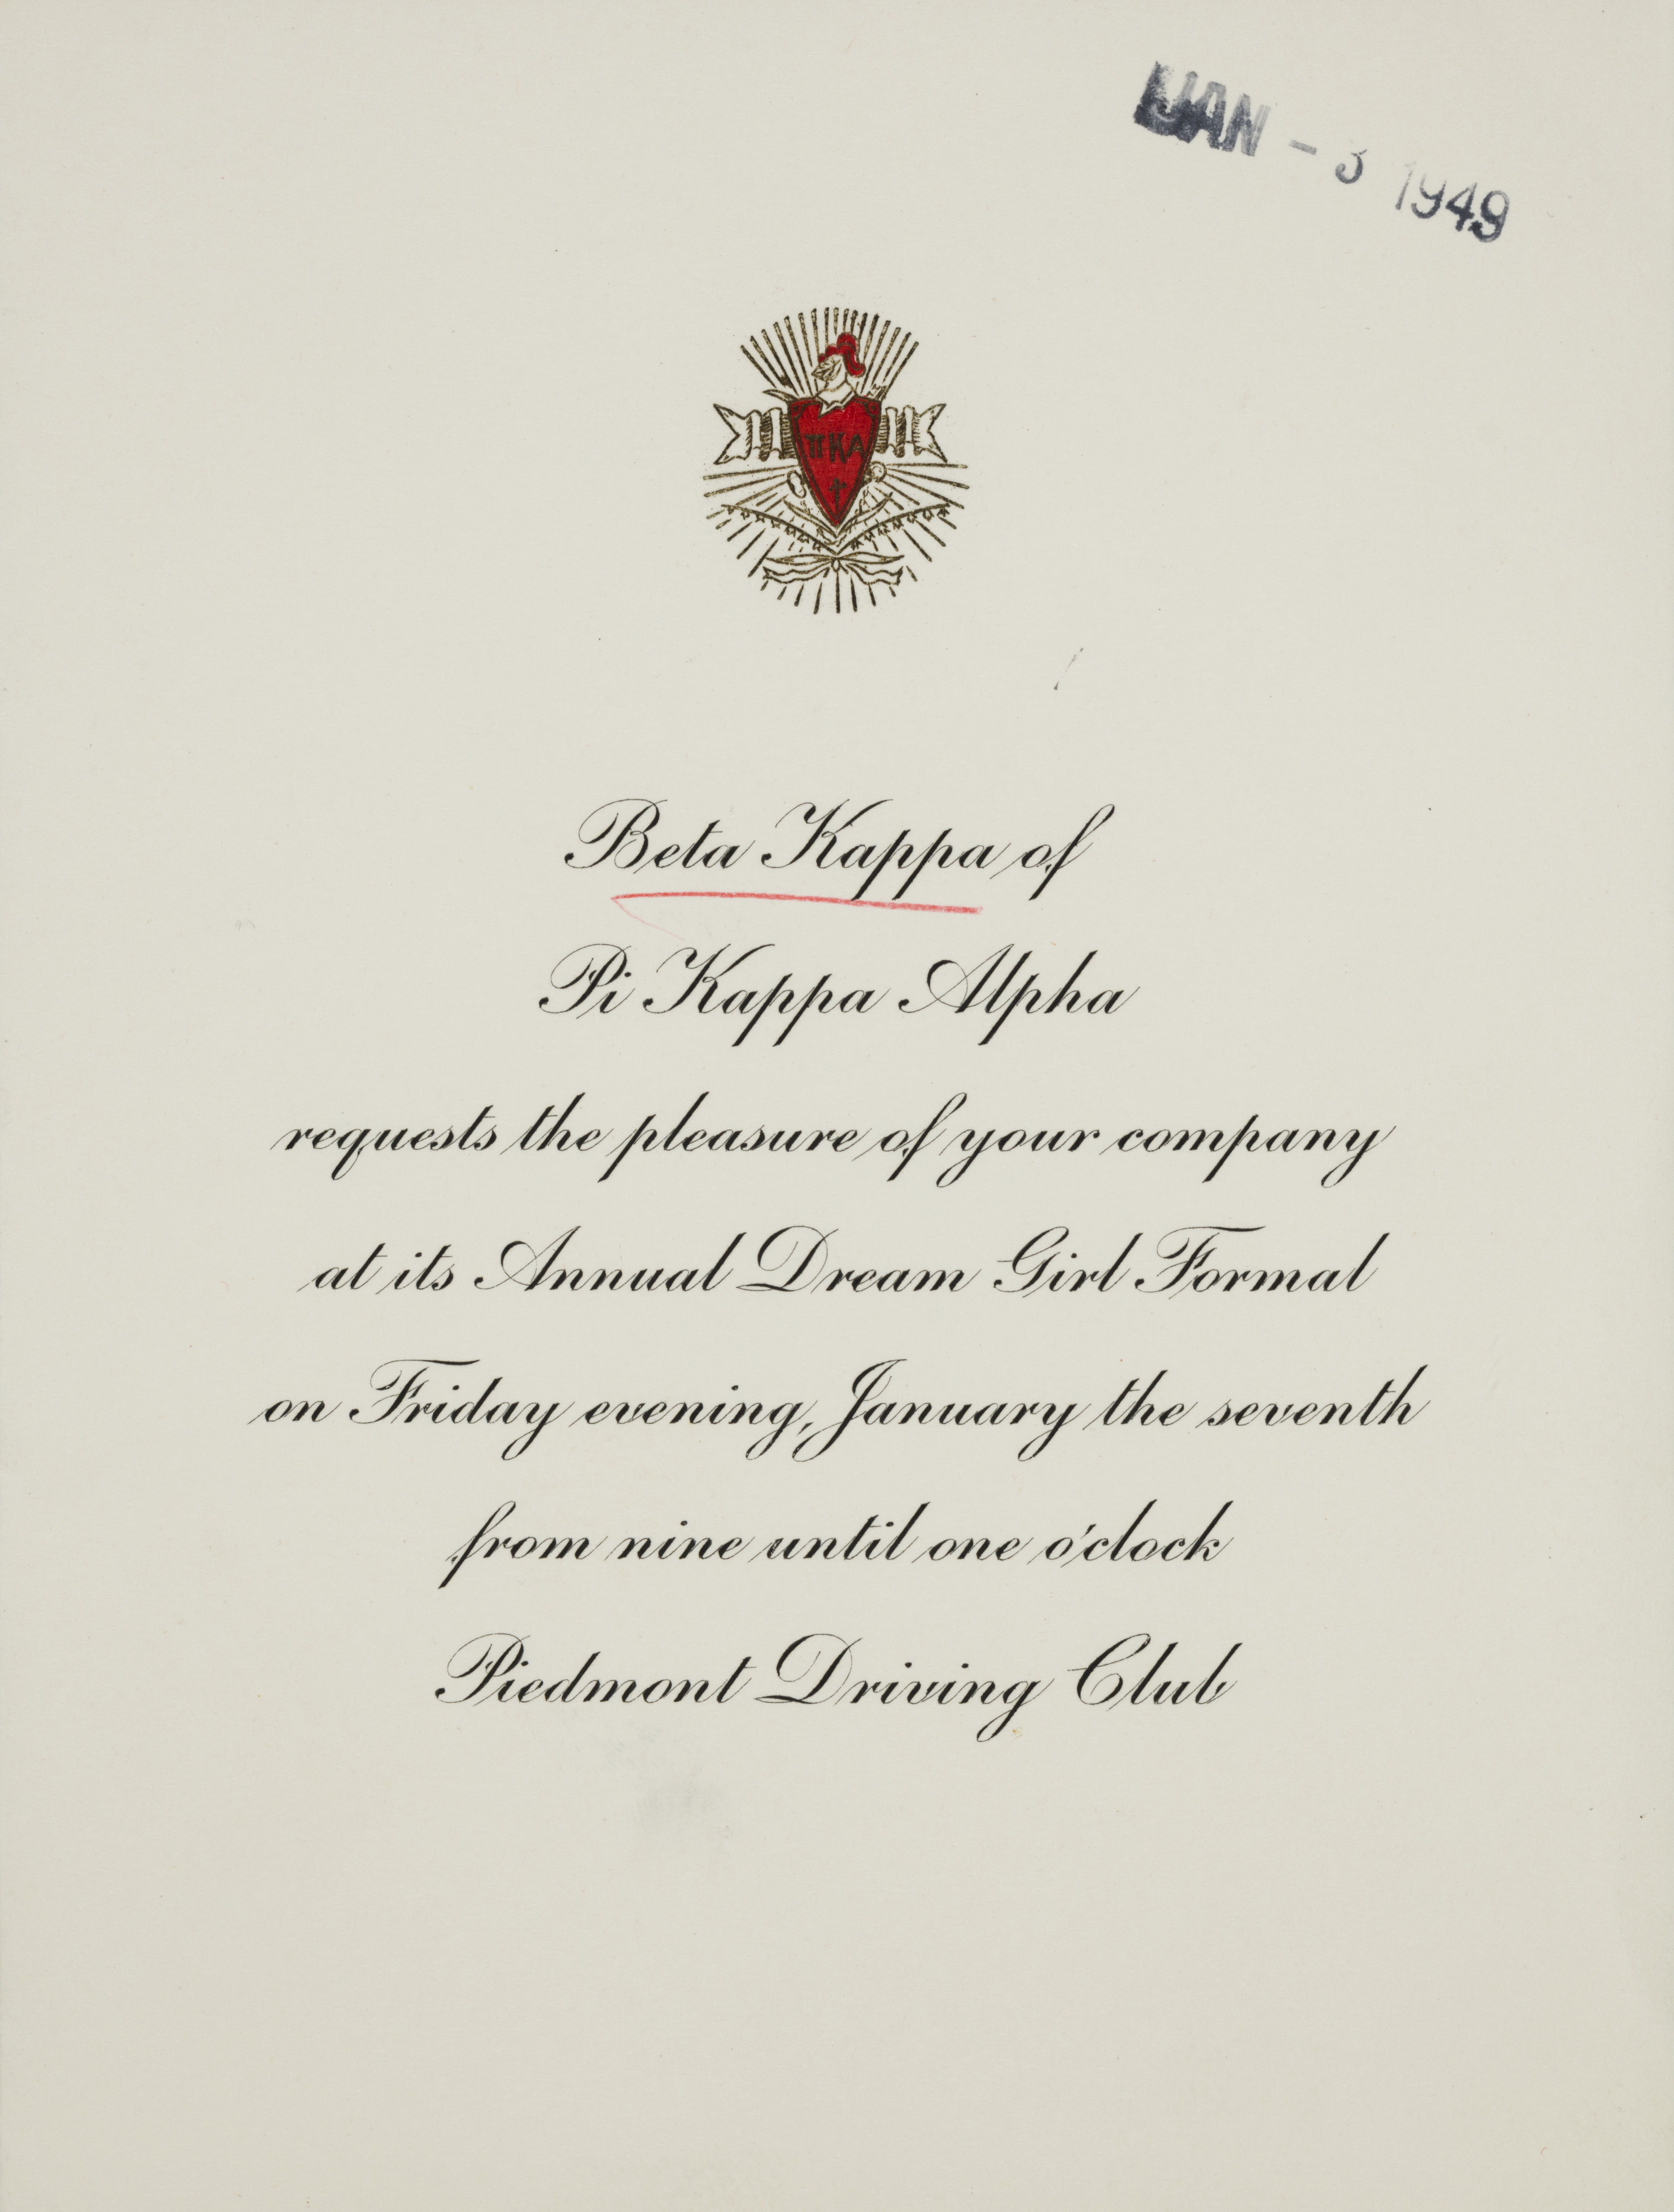 JAN - 3 1949
ΠΚΑ
Beta Kappa of
Pi Kappa Alpha
requests the pleasure of your company
at its Annual Dream Girl Formal
on Friday evening, January the seventh
from nine until one o'clock
Piedmont Driving Club